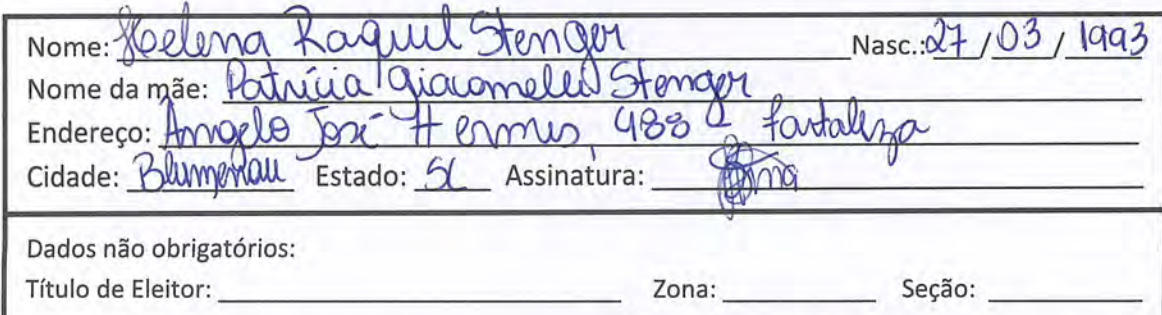 Nome: Helena Raquel Stenger Nasc.: 27 / 03 / 1993
Nome da mãe: Patrícia Giacomelli Stenger
Endereço: Angelo José Hermes, 488 - Fortaleza
Cidade: Blumenau Estado: SC Assinatura:
Dados não obrigatórios:
Título de Eleitor: Zona: Seção: